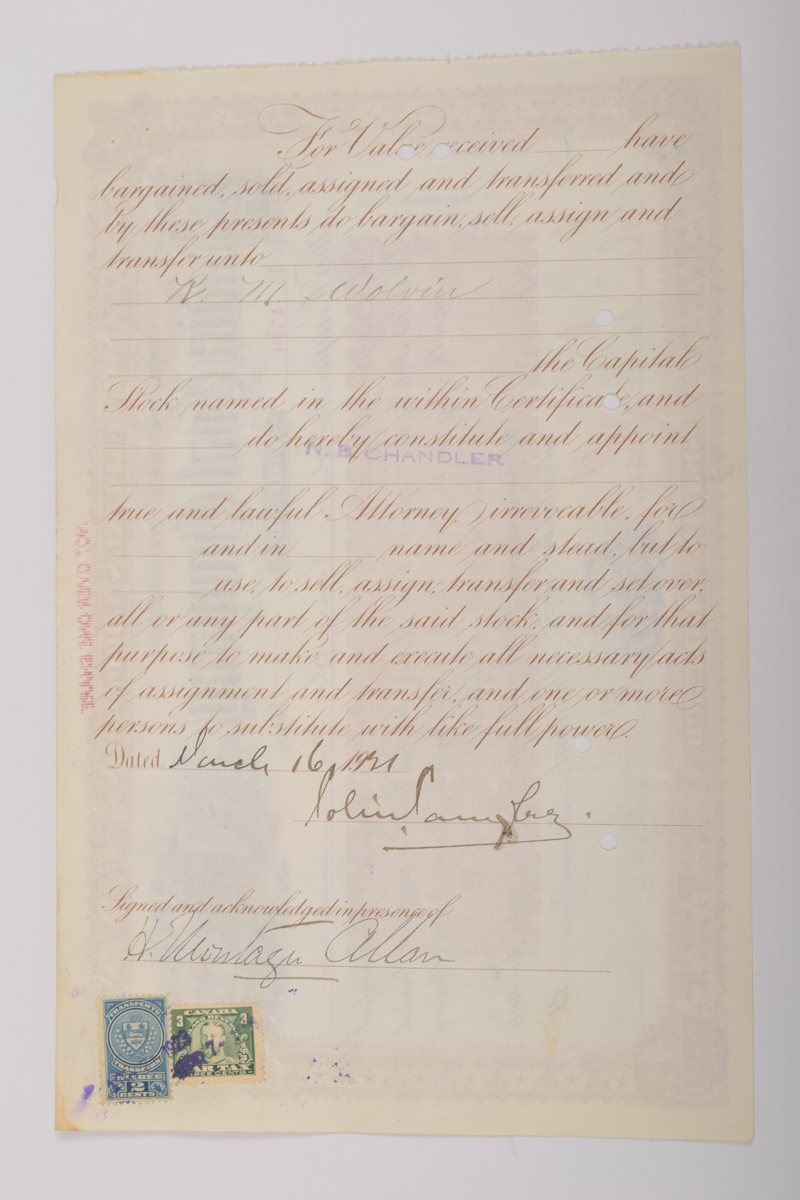 For Value received have
bargained, sold, assigned and transferred and
by these presents do bargain, sell, assign and
transfer unto
R. M. Wolvin
the Capital
Stock named in the within Certificate, and
do hereby constitute and appoint
N. B. CHANDLER
true and lawful Attorney, irrevocable, for
and in name and stead, but to
use, to sell, assign, transfer and set over,
all or any part of the said stock, and for that
purpose to make and execute all necessary acts
of assignment and transfer, and one or more
persons to substitute with like full power.
Dated March 16 1921
Signed and acknowledged in presence of
H. Montagu Allan
TRANSFERTS
TRANSFERS
QUEBEC
2
CENTS
CANADA
3 3
WAR TAX
THREE CENTS